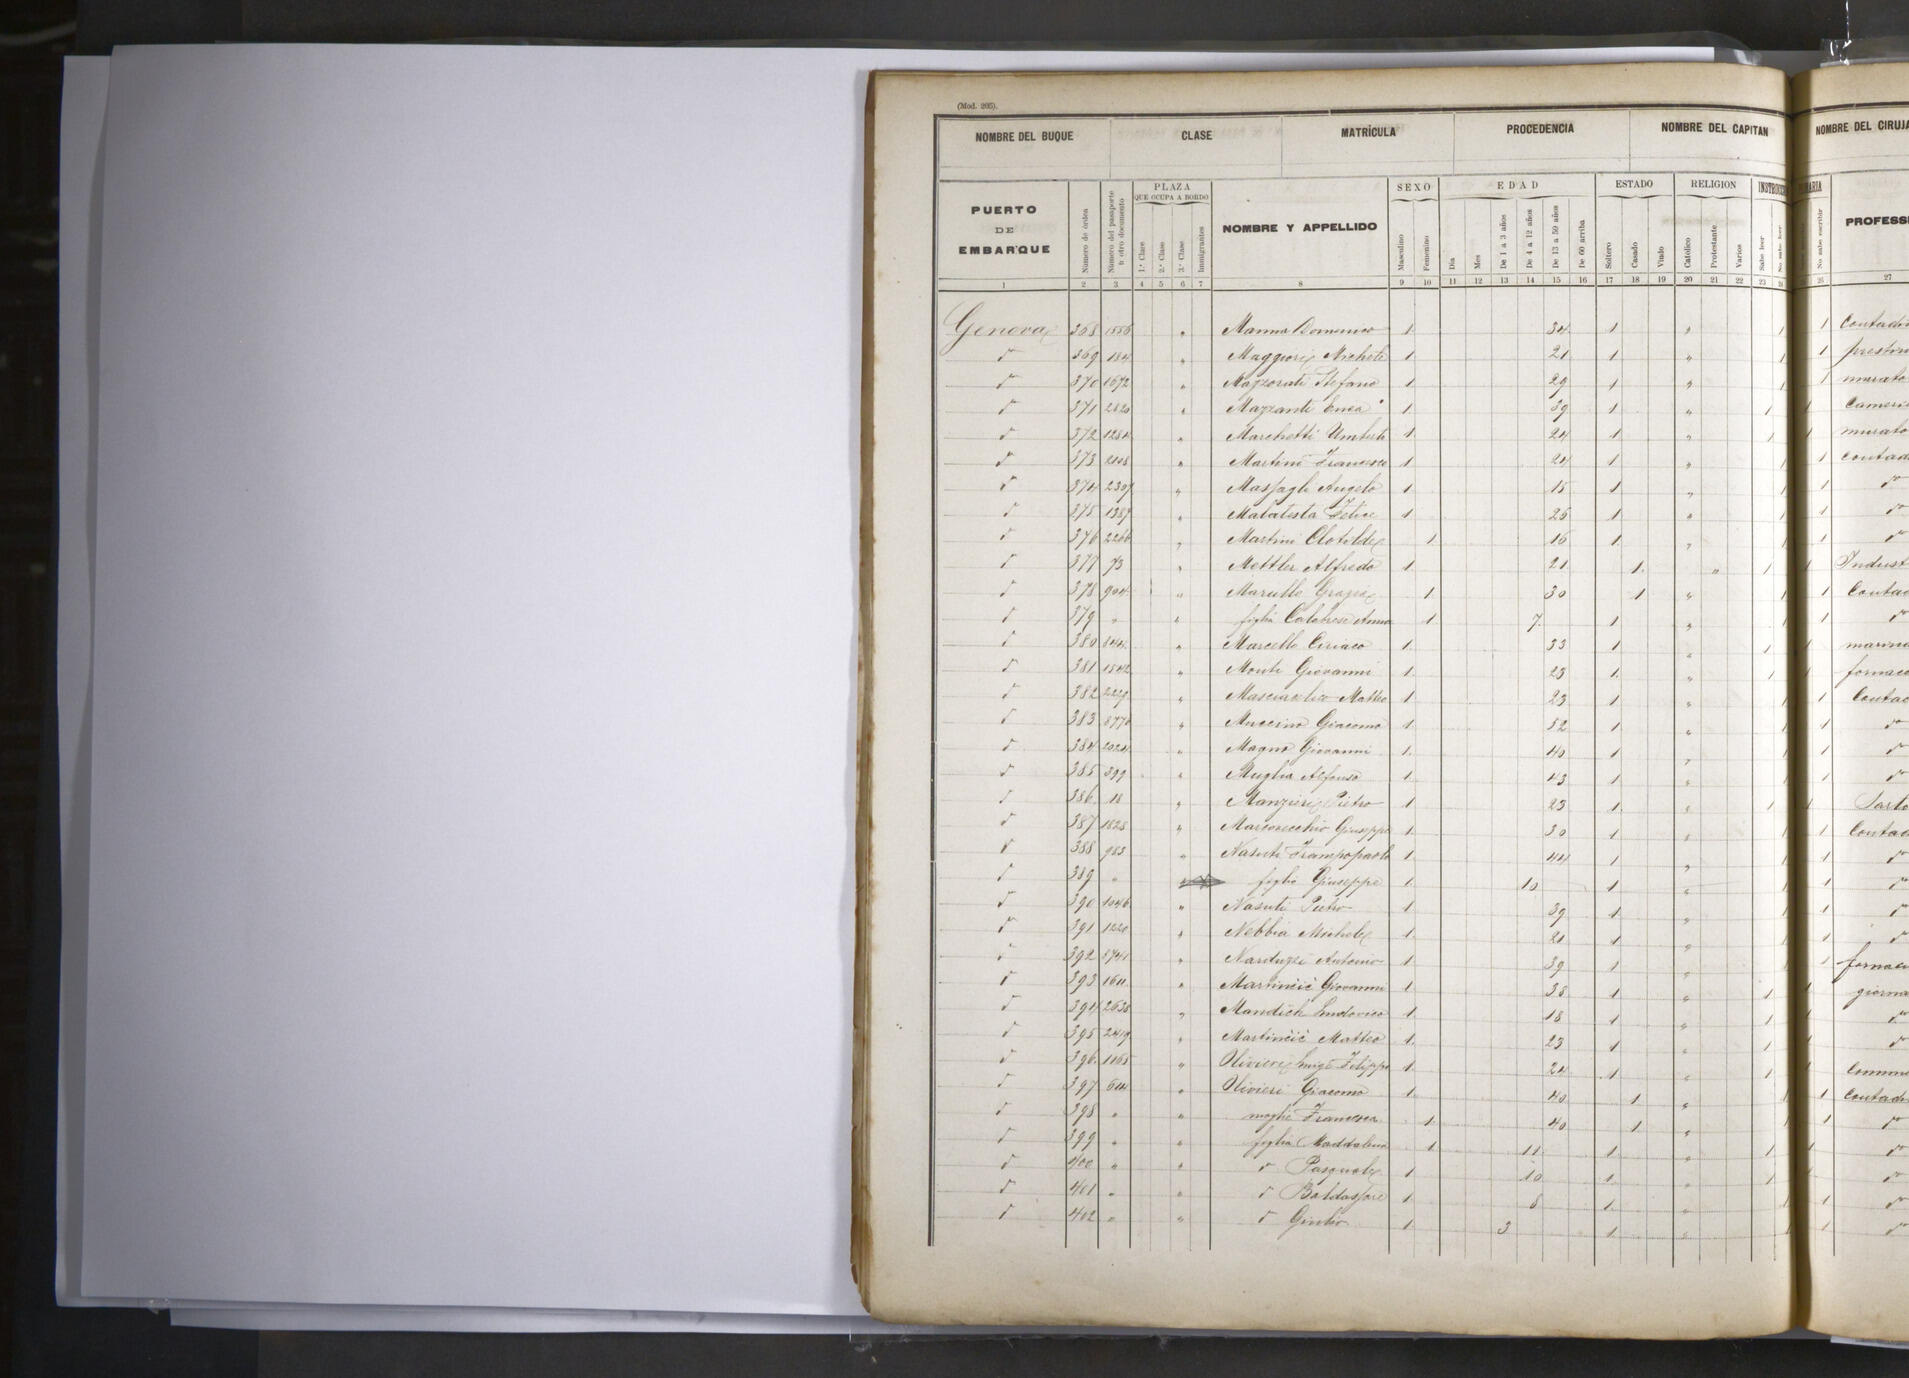 (Mod. 205).
NOMBRE DEL BUQUE CLASE MATRÍCULA PROCEDENCIA NOMBRE DEL CAPITAN NOMBRE DEL CIRUJA
PUERTO DE EMBARQUE Número de órden Número del pasaporte ú otro documento PLAZA QUE OCUPA A BORDO NOMBRE Y APPELLIDO SEXO EDAD ESTADO RELIGION PROFESS
1.ª Clase 2.ª Clase 3.ª Clase Inmigrantes Masculino Femenino Dia Mes De 1 a 3 años De 4 a 12 años De 13 a 59 años De 60 arriba Soltero Casado Viudo Católico Protestante Varios Sabe leer No sabe leer No sabe escribir
1 2 3 4 5 6 7 8 9 10 11 12 13 14 15 16 17 18 19 20 21 22 23 24 26 27
Genova 368 1556 " Manna Domenico 1 34 1 " 1 1 Contadi
d 369 184 " Maggiori Michele 1 21 1 " 1 1
d 370 1672 " Mazzorati Stefano 1 29 1 " 1 1 murato
d 371 2820 " Mazzanti Enea 1 39 1 " 1 1 Cameri
d 372 1284 " Marchetti Umberto 1 24 1 " 1 1 murato
d 373 2108 " Martini Francesco 1 24 1 " 1 1 Contad
d 374 2307 " Massagli Angelo 1 15 1 " 1 1 d
d 375 1387 " Malatesta Felice 1 25 1 " 1 1 d
d 376 2266 " Martini Clotilde 1 16 1 " 1 1 d
d 377 73 " Mettler Alfredo 1 21 1 " 1 1 Indust
d 378 904 " Marullo Grazia 1 30 1 " 1 1 Contad
d 379 " " figlia Calabrese Anna 1 7 1 " 1 1 d
d 380 844 " Marcello Ciriaco 1 33 1 " 1 1 marine
d 381 1542 " Monti Giovanni 1 23 1 " 1 1 fornac
d 382 2229 " Matteo 1 23 1 " 1 1 Contad
d 383 8770 " Giacomo 1 52 1 " 1 1 d
d 384 2024 " Magno Giovanni 1 40 1 " 1 1 d
d 385 399 " Muglia Alfonso 1 43 1 " 1 1 d
d 386 18 " Manzieri Pietro 1 23 1 " 1 1 Sarto
d 387 1828 " Marcovecchio Giuseppe 1 30 1 " 1 1 Contad
d 388 983 " Nasuti 1 44 1 " 1 1 d
d 389 " " figlio Giuseppe 1 10 1 " 1 1 d
d 390 1046 " Nasuti Pietro 1 39 1 " 1 1 d
d 391 1220 " Nebbia Michele 1 21 1 " 1 1 d
d 392 8741 " Narduzzi Antonio 1 39 1 " 1 1 fornac
d 393 1611 " Martincic Giovanni 1 38 1 " 1 1 giorna
d 394 2638 " Mandich Lodovico 1 18 1 " 1 1 d
d 395 2419 " Martinčić Matteo 1 23 1 " 1 1 d
d 396 1165 " Olivieri Luigi Filippo 1 24 1 " 1 1 Comme
d 397 614 " Olivieri Giacomo 1 40 1 " 1 1 Contad
d 398 " " moglie Francesca 1 40 1 " 1 1 d
d 399 " " figlia Maddalena 1 11 1 " 1 1 d
d 400 " " d Pasquale 1 10 1 " 1 1 d
d 401 " " d Baldassare 1 8 1 " 1 1 d
d 402 " " d Giulio 1 3 1 " 1 1 d